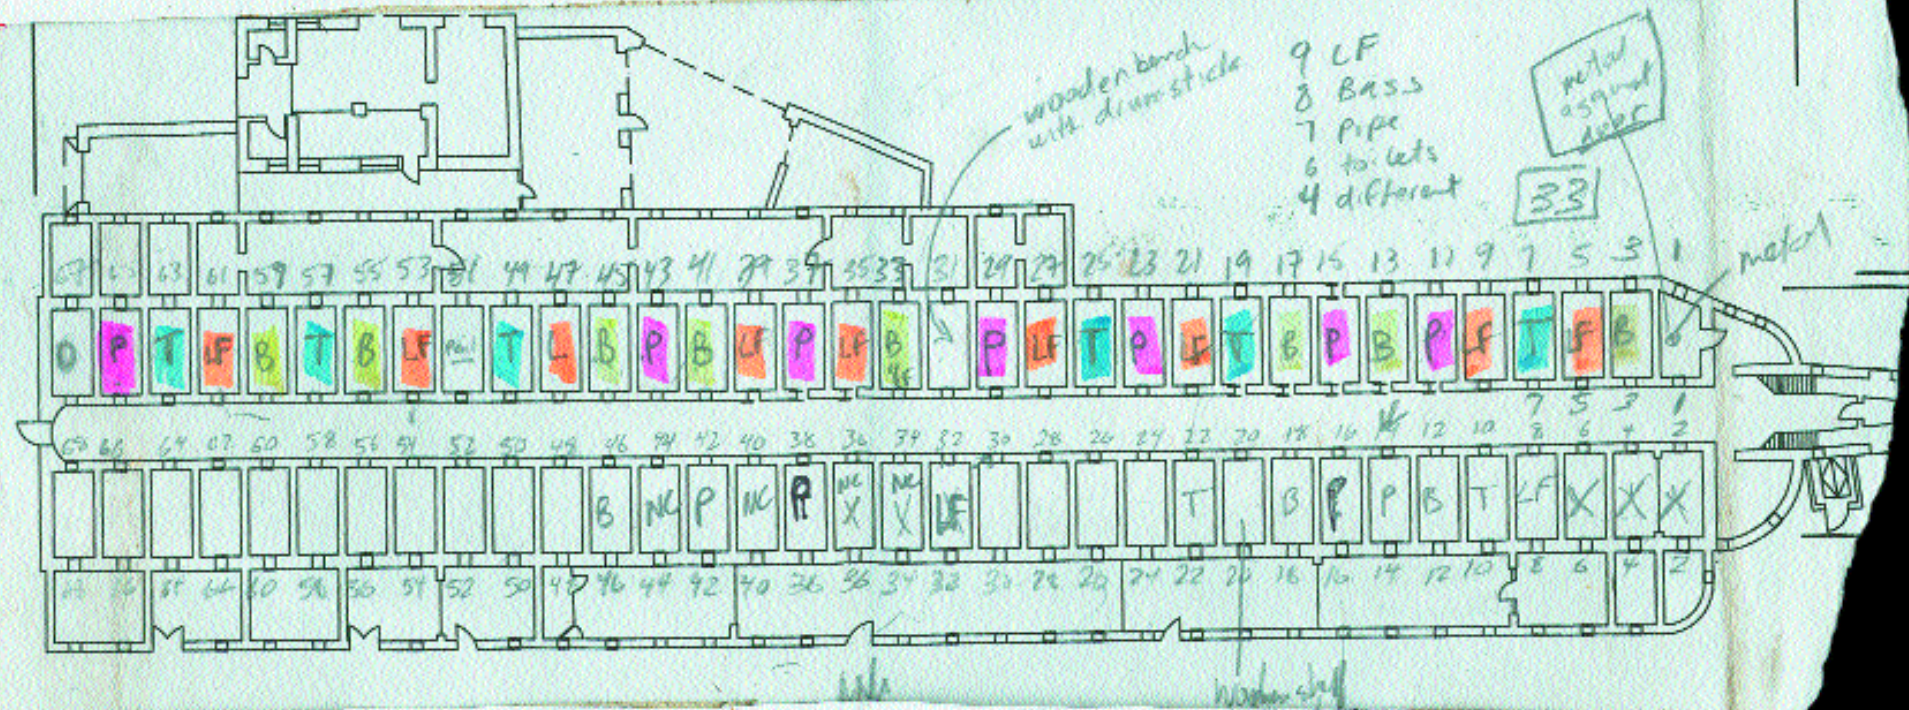 wooden bench
with drumstick
9 LF
8 Bass
7 pipe
6 toilets
4 different
33
metal
against
door
metal
63 61 59 57 55 53 51 49 47 45 43 41 39 37 35 33 31 29 27 25 23 21 19 17 15 13 11 9 7 5 3 1
D P T LF B T B LF pail T L B P B LF P LF B P LF T P LF T B P B P LF T LF B
7 5 3 1
68 66 64 62 60 58 56 54 52 50 48 46 44 42 40 38 36 34 32 30 28 26 24 22 20 18 16 14 12 10 8 6 4 2
B NC P NC P NC X NC X LF T B P P B T LF X X X
60 58 56 54 52 50 48 46 44 42 40 38 36 34 32 30 28 26 24 22 20 18 16 14 12 10 8 6 4 2